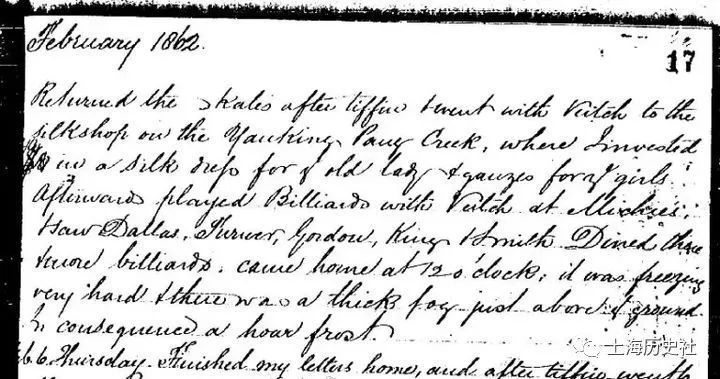 February 1862.
17
Returned the skates after tiffin & went with Veitch to the
silkshop on the Yanking Pang Creek, where I invested
in a silk dress for ye old lady & gauzes for ye girls.
Afterwards played Billiards with Veitch at Michies,
& saw Dallas, Turner, Gordon, King & Smith Dined there
& more billiards. came home at 12 o'clock; it was freezing
very hard & there was a thick fog just above ye ground
in consequence a hoar frost.
6. Thursday. Finished my letters home, and after tiffin went
上海历史社